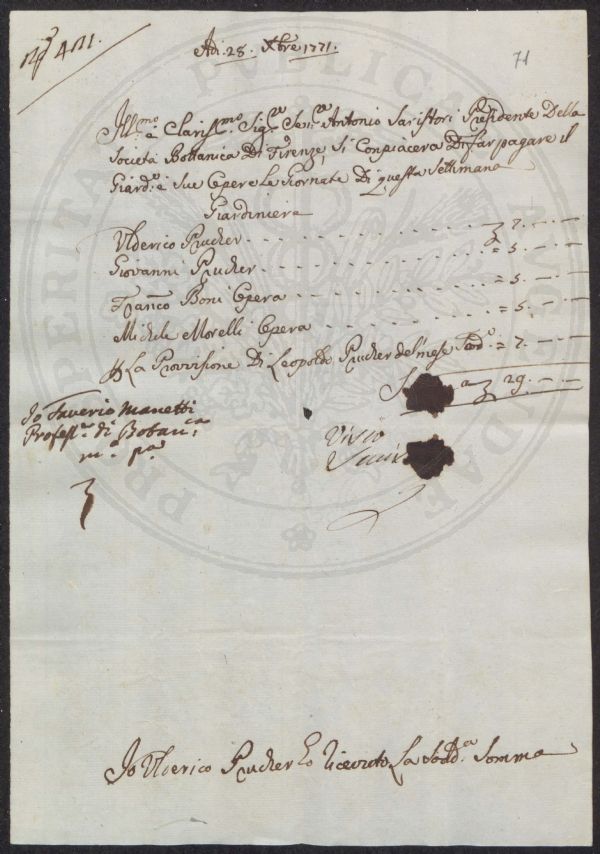 N.º 421.
71
Adi. 28. Xbre 1771.
Ill.mo e Clariss.mo Sig.re Sen.re Antonio Saristori Presidente Della
Società Bottanica Di Firenze, si Conpiacera Di far pagare il
Giard.e e Sue Opere Le Giornate Di questa Settimana
Giardiniera
Ulderico Prucker . . . . . . . . 7. — —
Giovanni Prucker . . . . . . . . = 5. — —
Franco Boni Opera . . . . . . . = 5. — —
Michele Morelli Opera . . . . . = 5. — —
La Provisione Di Leopoldo Prucker del mese Sud.o = 7. — —
29. — —
Io Saverio Manetti
Profess.re di Botan.ca
m.o p.a
Visto
Io Ulderico Prucker ho Ricevuto La Sodd.a Somma